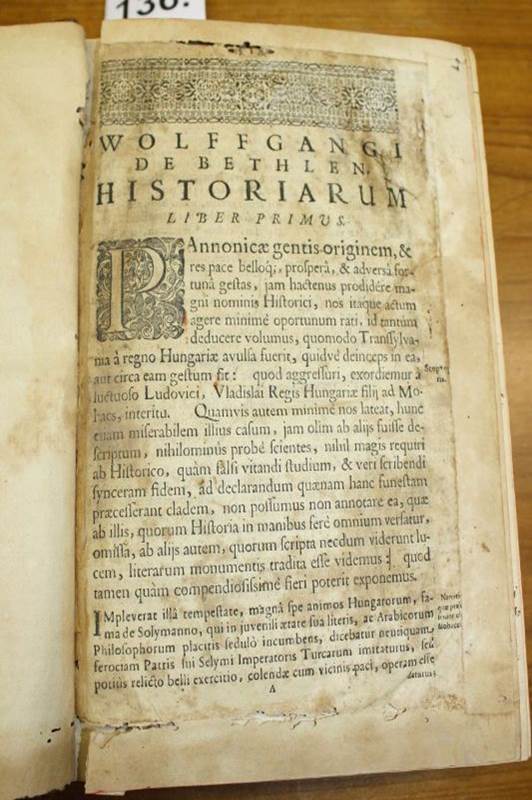 136.
WOLFFGANGI
DE BETHLEN,
HISTORIARUM
LIBER PRIMUS.
PAnnonicæ gentis originem, &
res pace belloq;, prosperâ, & adversâ for-
tunâ gestas, jam hactenus prodidêre ma-
gni nominis Historici, nos itaque actum
agere minimè oportunum rati, id tantùm
deducere volumus, quomodo Transsylva-
nia à regno Hungariæ avulsa fuerit, quidvé deinceps in ea,
aut circa eam gestum sit: quod aggressuri, exordiemur à
luctuoso Ludovici, Vladislai Regis Hungariæ filij ad Mo-
hacs, interitu. Quamvis autem minimè nos lateat, hunc
etiam miserabilem illius casum, jam olim ab alijs fuisse de-
scriptum, nihilominus probè scientes, nihil magis requiri
ab Historico, quàm falsi vitandi studium, & veri scribendi
synceram fidem, ad declarandum quænam hanc funestam
præcesserant cladem, non possumus non annotare ea, quæ
ab illis, quorum Historia in manibus ferè omnium versatur,
omissa, ab alijs autem, quorum scripta necdum viderunt lu-
cem, literarum monumentis tradita esse videmus: quod
tamen quàm compendiosissimè fieri poterit exponemus.
IMpleverat illâ tempestate, magnâ spe animos Hungarorum, fa-
ma de Solymanno, qui in juvenili ætate sua literis, ac Arabicorum
Philosophorum placitis sedulò incumbens, dicebatur nequaquam
ferociam Patris sui Selymi Imperatoris Turcarum imitaturus, sed
potiùs relicto belli exercitio, colendæ cum vicinis paci, operam esse
A
daturus;